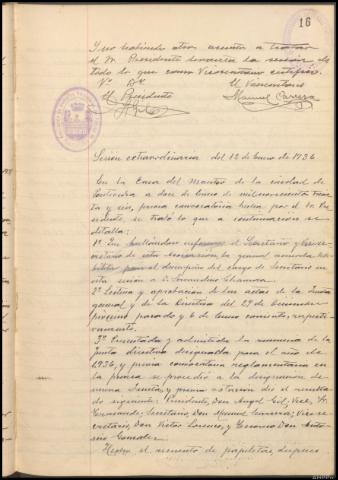 16
Y no habiendo otros asuntos a tratar
el Sr. Presidente levantó la sesión de
todo lo que como Vicesecretario certifico.
Vº Bº
El Presidente
El Vicesecretario
Manuel
Sesión extraordinaria del 12 Enero de 1936
En la Casa del Maestro de la ciudad de
Pontevedra a doce de Enero de mil novecientos trein-
ta y seis, previa convocatoria hecha por el Sr. Pre-
sidente, se trató lo que a continuación se
detalla:
1º Por hallarse el Secretario y Vicese-
cretario de esta Asociación, la general acuerda
para el desempeño del cargo de Secretario en
esta sesión a D.
2º Lectura y aprobación de las actas de la Junta
general y de la Directiva del 29 de Diciembre
próximo pasado y 6 de Enero corriente, respecti-
vamente.
3º Presentada y admitida la renuncia de la
Junta directiva designada para el año de
1936, y previa convocatoria reglamentaria en
la prensa se procedió a la designación de
nueva Junta, y previa votación dió el resulta-
do siguiente: Presidente, Don Angel Gil; Vice, Sr.
Secretario, Don Manuel Vicese-
cretario, Don Victor Lorenzo, y Tesorero Don Anto-
nio González
Hecho el recuento de papeletas,